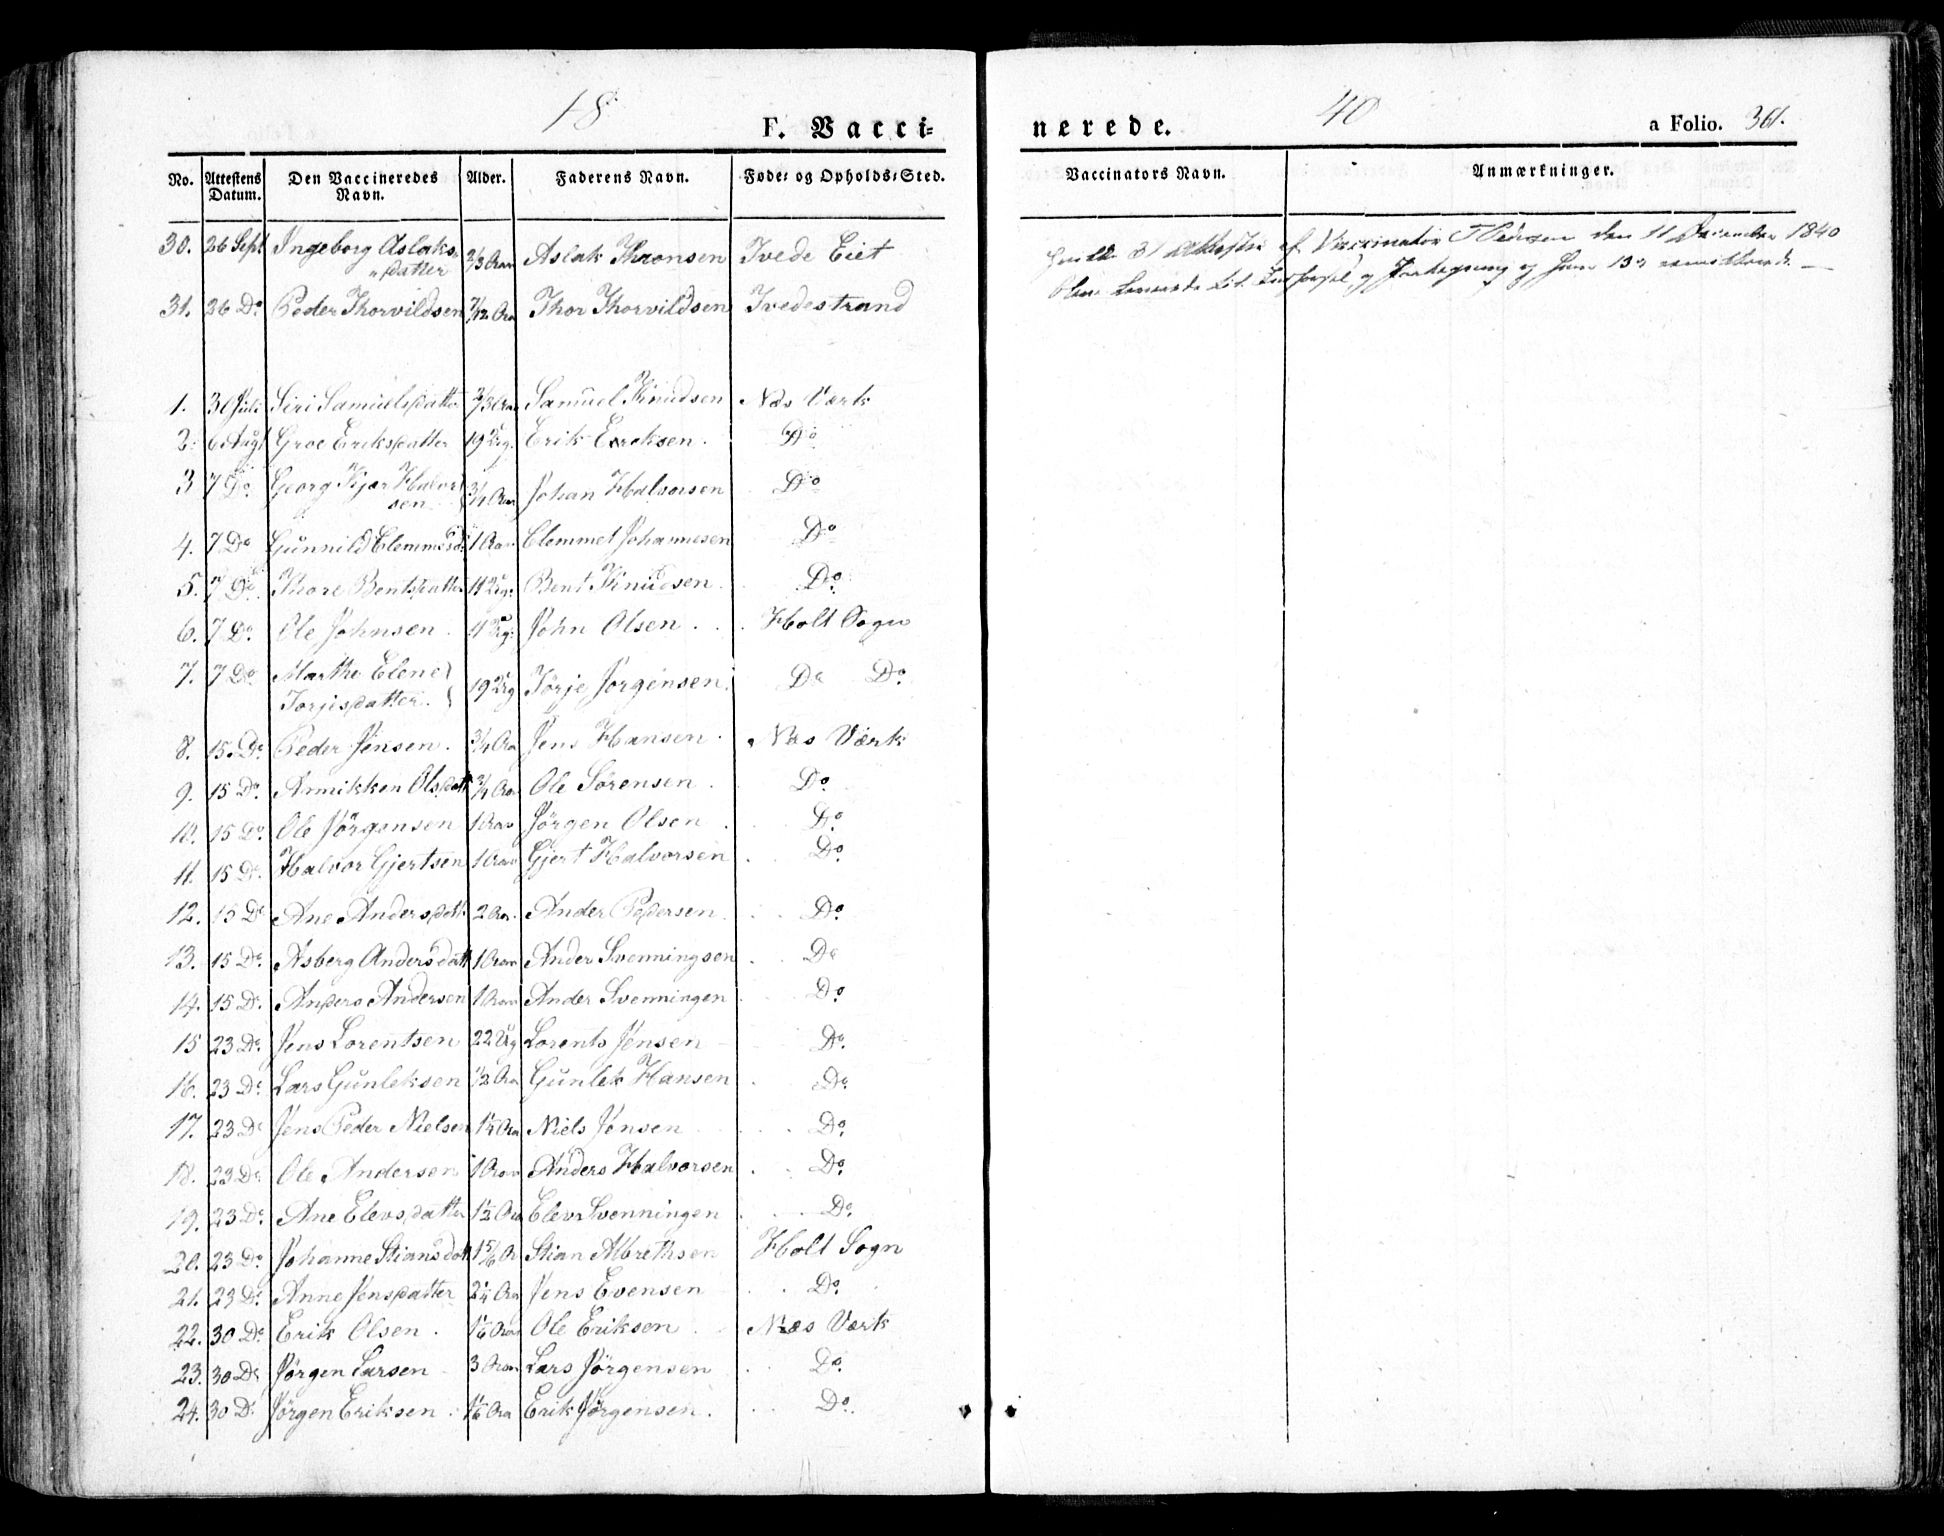 18 40
F. Vacci= nerede. a Folio. 361.
No. Attestens Datum. Den Vaccineredes Navn. Alder. Faderens Navn. Føde= og Opholds=Sted. Vaccinators Navn. Anmærkninger.
30. 26 Sept Ingeborg Aslaks= 2/3 Aar Aslak Thronsen Tvede Eiet
datter
31. 26 Do Peder Thorvildsen 7/12 Aar Thor Thorvildsen Tvedestrand
31 Attester af Vaccinator den 11 December 1840
og
1. 30 Juli Siri Samuelsdatter 2/3 Aar Samuel Knudsen Næs Værk
2. 6 Augt Groe Eriksdatter 19 Erik Ereksen. Do
3 7 Do Georg Kjær Halvor 3/4 Aar Johan Halvorsen Do
sen
4. 7 Do Gunnild Clemmesd. 1 Aar Clemmet Johannesen Do
5. 7 Do. Thore Bentsdatter 11 Bent Knudsen. Do.
6. 7 Do. Ole Johnsen. 11 John Olsen. Holt Sogn
7. 7 Do Marthe Elene 19 Tørje Jorgensen Do Do.
Torjisdatter.
8. 15. Do Peder Jensen. 3/4 Aar Jens Hansen. Næs Værk
9. 15 Do. Annikken Olsdatt 3/4 Aar Ole Sørensen Do.
10. 15 Do. Ole Jørgensen 1 Aar Jörgen Olsen Do.
11. 15 Do. Halvor Gjertsen 1 Aar Gjert Halvorsen Do.
12. 15 Do Ane Andersdatt 2 Aar. Ander Pedersen. Do.
13. 15 Do. Asberg Andersdatt 1 Aar Ander Svenningsen Do
14. 15 Do. Anders Andersen 1 Aar Ander Svenningen Do.
15 23 Do. Jens Lorentsen 22 Lorents Jensen Do.
16. 23 Do. Lars Gunleksen 1/2 Aar Gunlek Hansen Do.
17. 23 Do Jens Peder Nielsen 1 1/4 Aar Niels Jensen Do.
18. 23 Do. Ole Andersen 1 Aar Anders Halvorsen Do.
19. 23 Do. Ane Elevsdatter 1 1/2 Aar Elev Svenningen Do.
20. 23 Do. Johanne Stiansdatt 1 5/6 Ar Stian Albrethsen Holt Sogn
21. 23 Do. Anne Jensdatter 2 1/4 Aar Jens Evensen Do.
22. 30 Do. Erik Olsen. 1 1/6 Aar Ole Eriksen Næs Værk
23. 30 Do. Jørgen Larsen 3 Aar Lars Jörgensen Do.
24. 30 Do Jørgen Eriksen. 1 1/6 Aar Erik Jørgensen. Do.